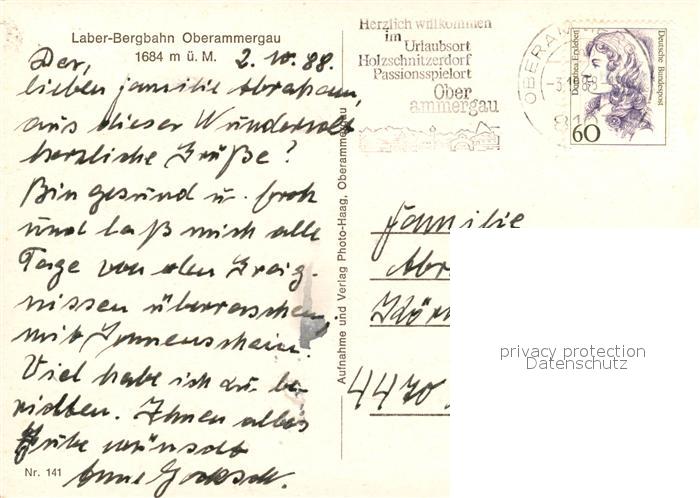 Laber-Bergbahn Oberammergau
1684 m ü. M.
2. 10. 88.
Der,
lieben Familie Abraham,
aus dieser Wunderwelt
herzliche Grüße!
Bin gesund u. froh
und laß mich alle
Tage von den Ereig-
nissen überraschen,
mit Sonnenschein!
Viel habe ich zu be-
richten. Ihnen alles
Gute wünscht
Anne
Nr. 141
Aufnahme und Verlag Photo-Haag, Oberammergau
Herzlich willkommen
im
Urlaubsort
Holzschnitzerdorf
Passionsspielort
Ober
ammergau
OBERAM
-3.10.88
810
Dorothea Erxleben
Deutsche Bundespost
60
Familie
Abr
4470
privacy protection
Datenschutz